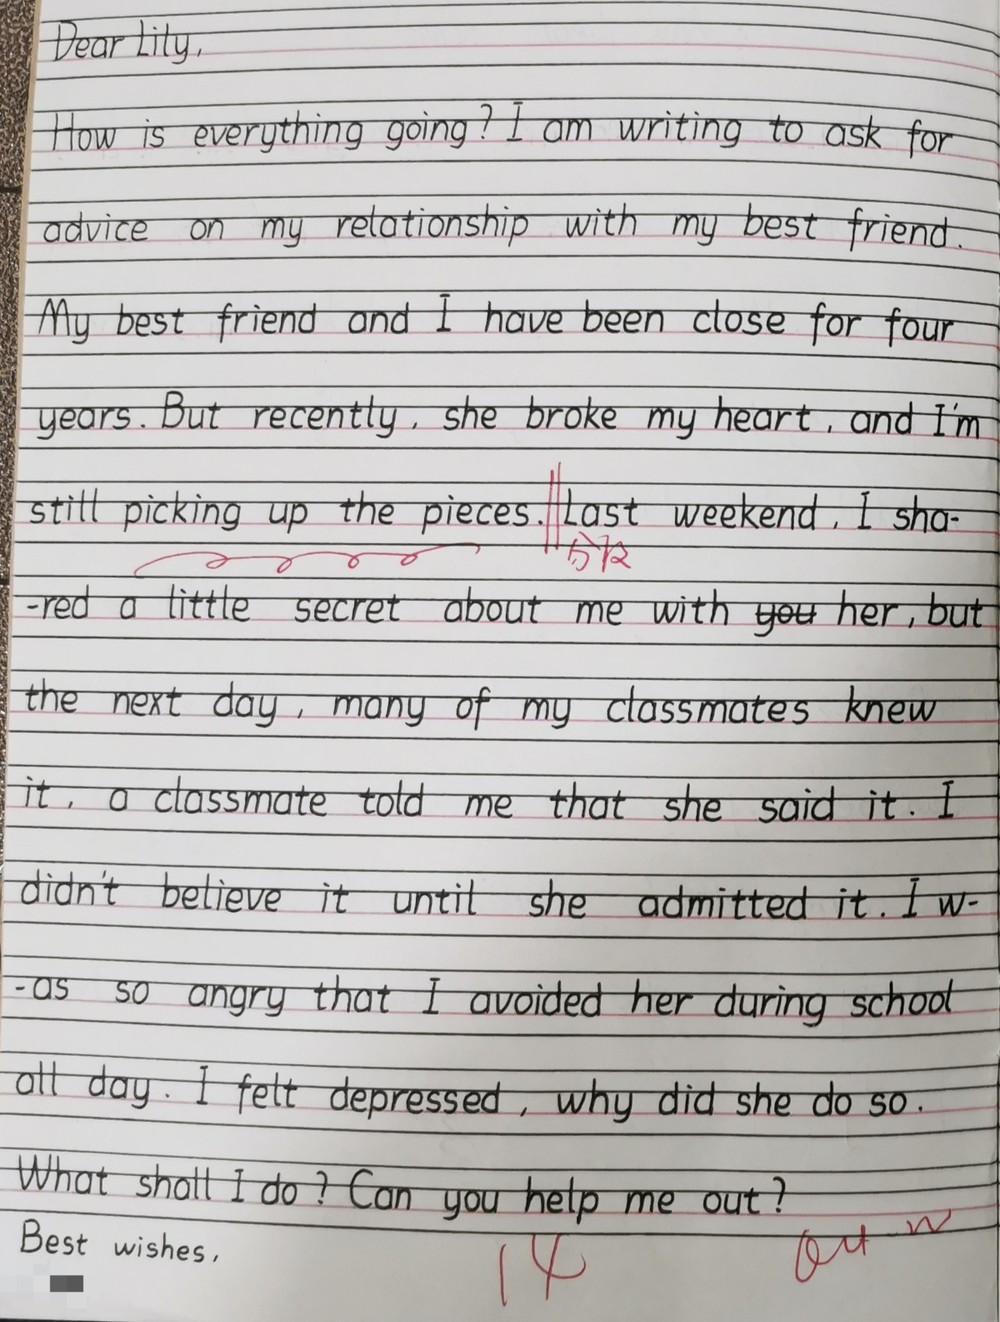 Dear Lily,
How is everything going? I am writing to ask for
advice on my relationship with my best friend.
My best friend and I have been close for four
years. But recently, she broke my heart, and I'm
still picking up the pieces. Last weekend, I sha-
分段
-red a little secret about me with you her, but
the next day, many of my classmates knew
it, a classmate told me that she said it. I
didn't believe it until she admitted it. I w-
-as so angry that I avoided her during school
all day. I felt depressed, why did she do so.
What shall I do? Can you help me out?
Best wishes,
14